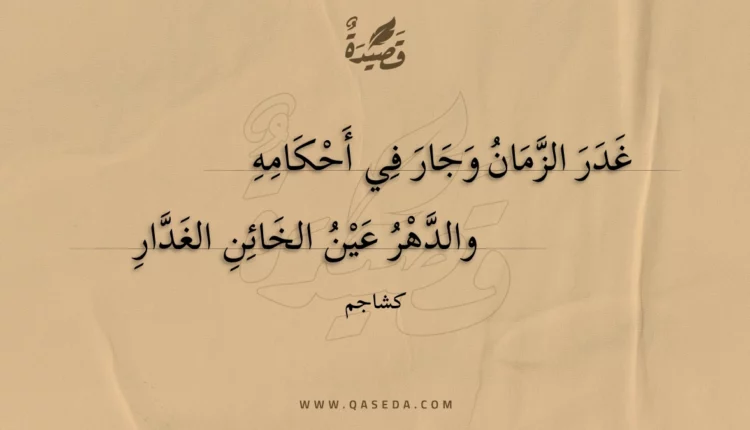 قَصِيْدَةٌ
غَدَرَ الزَّمَانُ وَجَارَ فِي أَحْكَامِهِ
والدَّهْرُ عَيْنُ الخَائِنِ الغَدَّارِ
كشاجم
WWW.QASEDA.COM